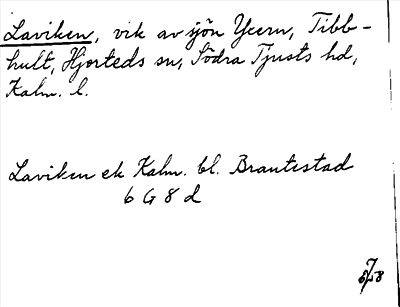 Laviken, vik av sjön Yxern, Tibb-
hult, Hjorteds sn, Södra Tjusts hd,
Kalm. l.
Laviken ek Kalm. bl. Brantestad
6 G 8 d